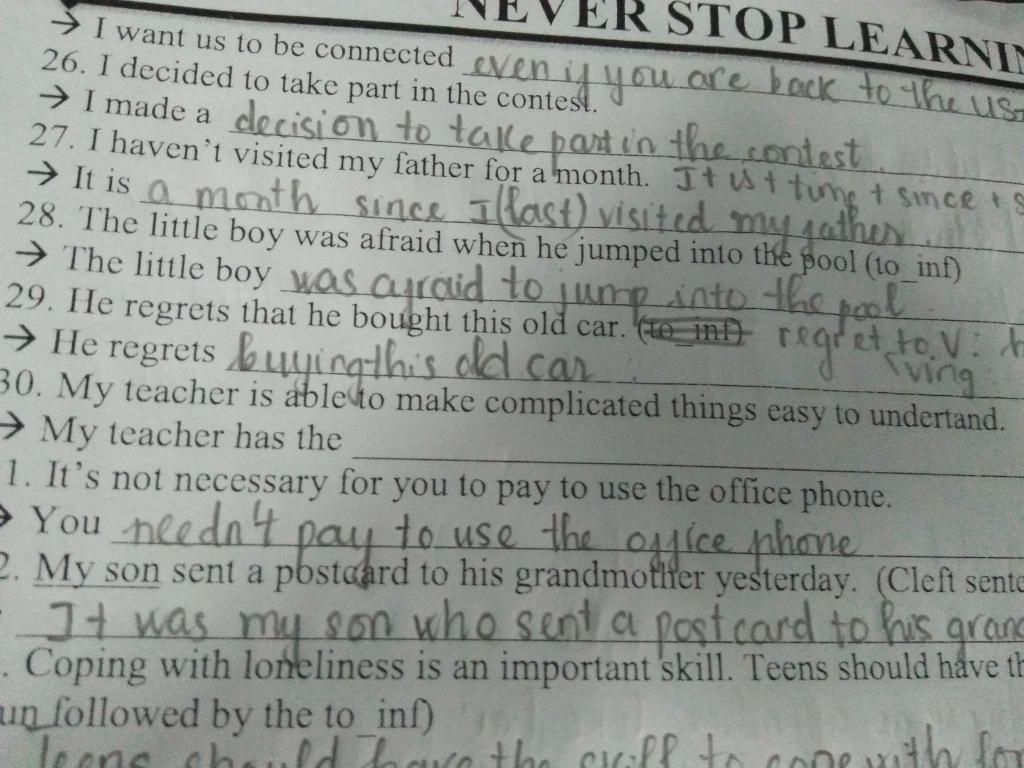 NEVER STOP LEARNIN
→ I want us to be connected even if you are back to the us
26. I decided to take part in the contest.
→ I made a decision to take part in the contest.
27. I haven't visited my father for a month. It is + time + since + s
→ It is a month since I (last) visited my father.
28. The little boy was afraid when he jumped into the pool (to_inf)
→ The little boy was afraid to jump into the pool.
29. He regrets that he bought this old car. (to_inf) regret to V:
→ He regrets buying this old car. ving
30. My teacher is able to make complicated things easy to undertand.
→ My teacher has the
1. It's not necessary for you to pay to use the office phone.
→ You needn't pay to use the office phone
2. My son sent a postcard to his grandmother yesterday. (Cleft sente
It was my son who sent a postcard to his gran
. Coping with loneliness is an important skill. Teens should have th
un followed by the to_inf)
teens should have the skill to cope with lon